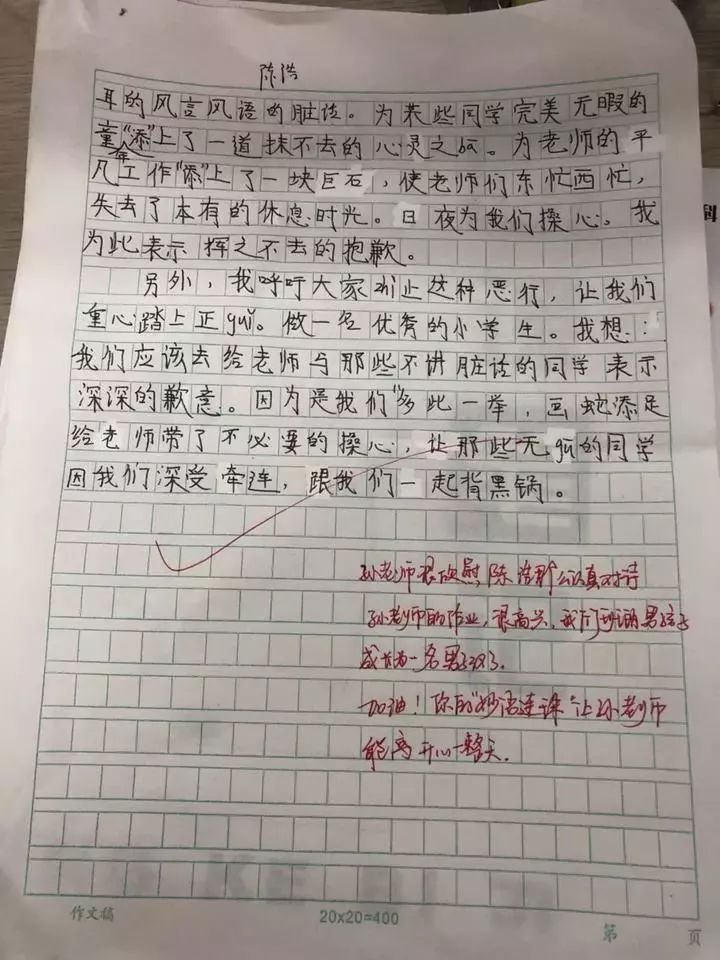 陈浩
耳的风言风语的脏话。为某些同学完美无暇的
童年"添"上了一道抹不去的心灵之ba。为老师的平
凡工作"添"上了一块巨石，使老师们东忙西忙，
失去了本有的休息时光。日夜为我们操心。我
为此表示挥之不去的抱歉。
另外，我呼吁大家zhi止这种恶行，让我们
重心踏上正gui。做一名优秀的小学生。我想：
我们应该去给老师与那些不讲脏话的同学表示
深深的歉意。因为是我们"多此一举，画蛇添足
给老师带了不必要的操心，让那些无gu的同学
因我们深受牵连，跟我们一起背黑锅。
孙老师很欣慰陈浩那么认真对待
孙老师的作业，很高兴，我们班的男孩子
成长为一名男子汉了.
加油！你的"妙语连珠"让孙老师
能高开心一整天.
作文稿
20x20=400
第 页